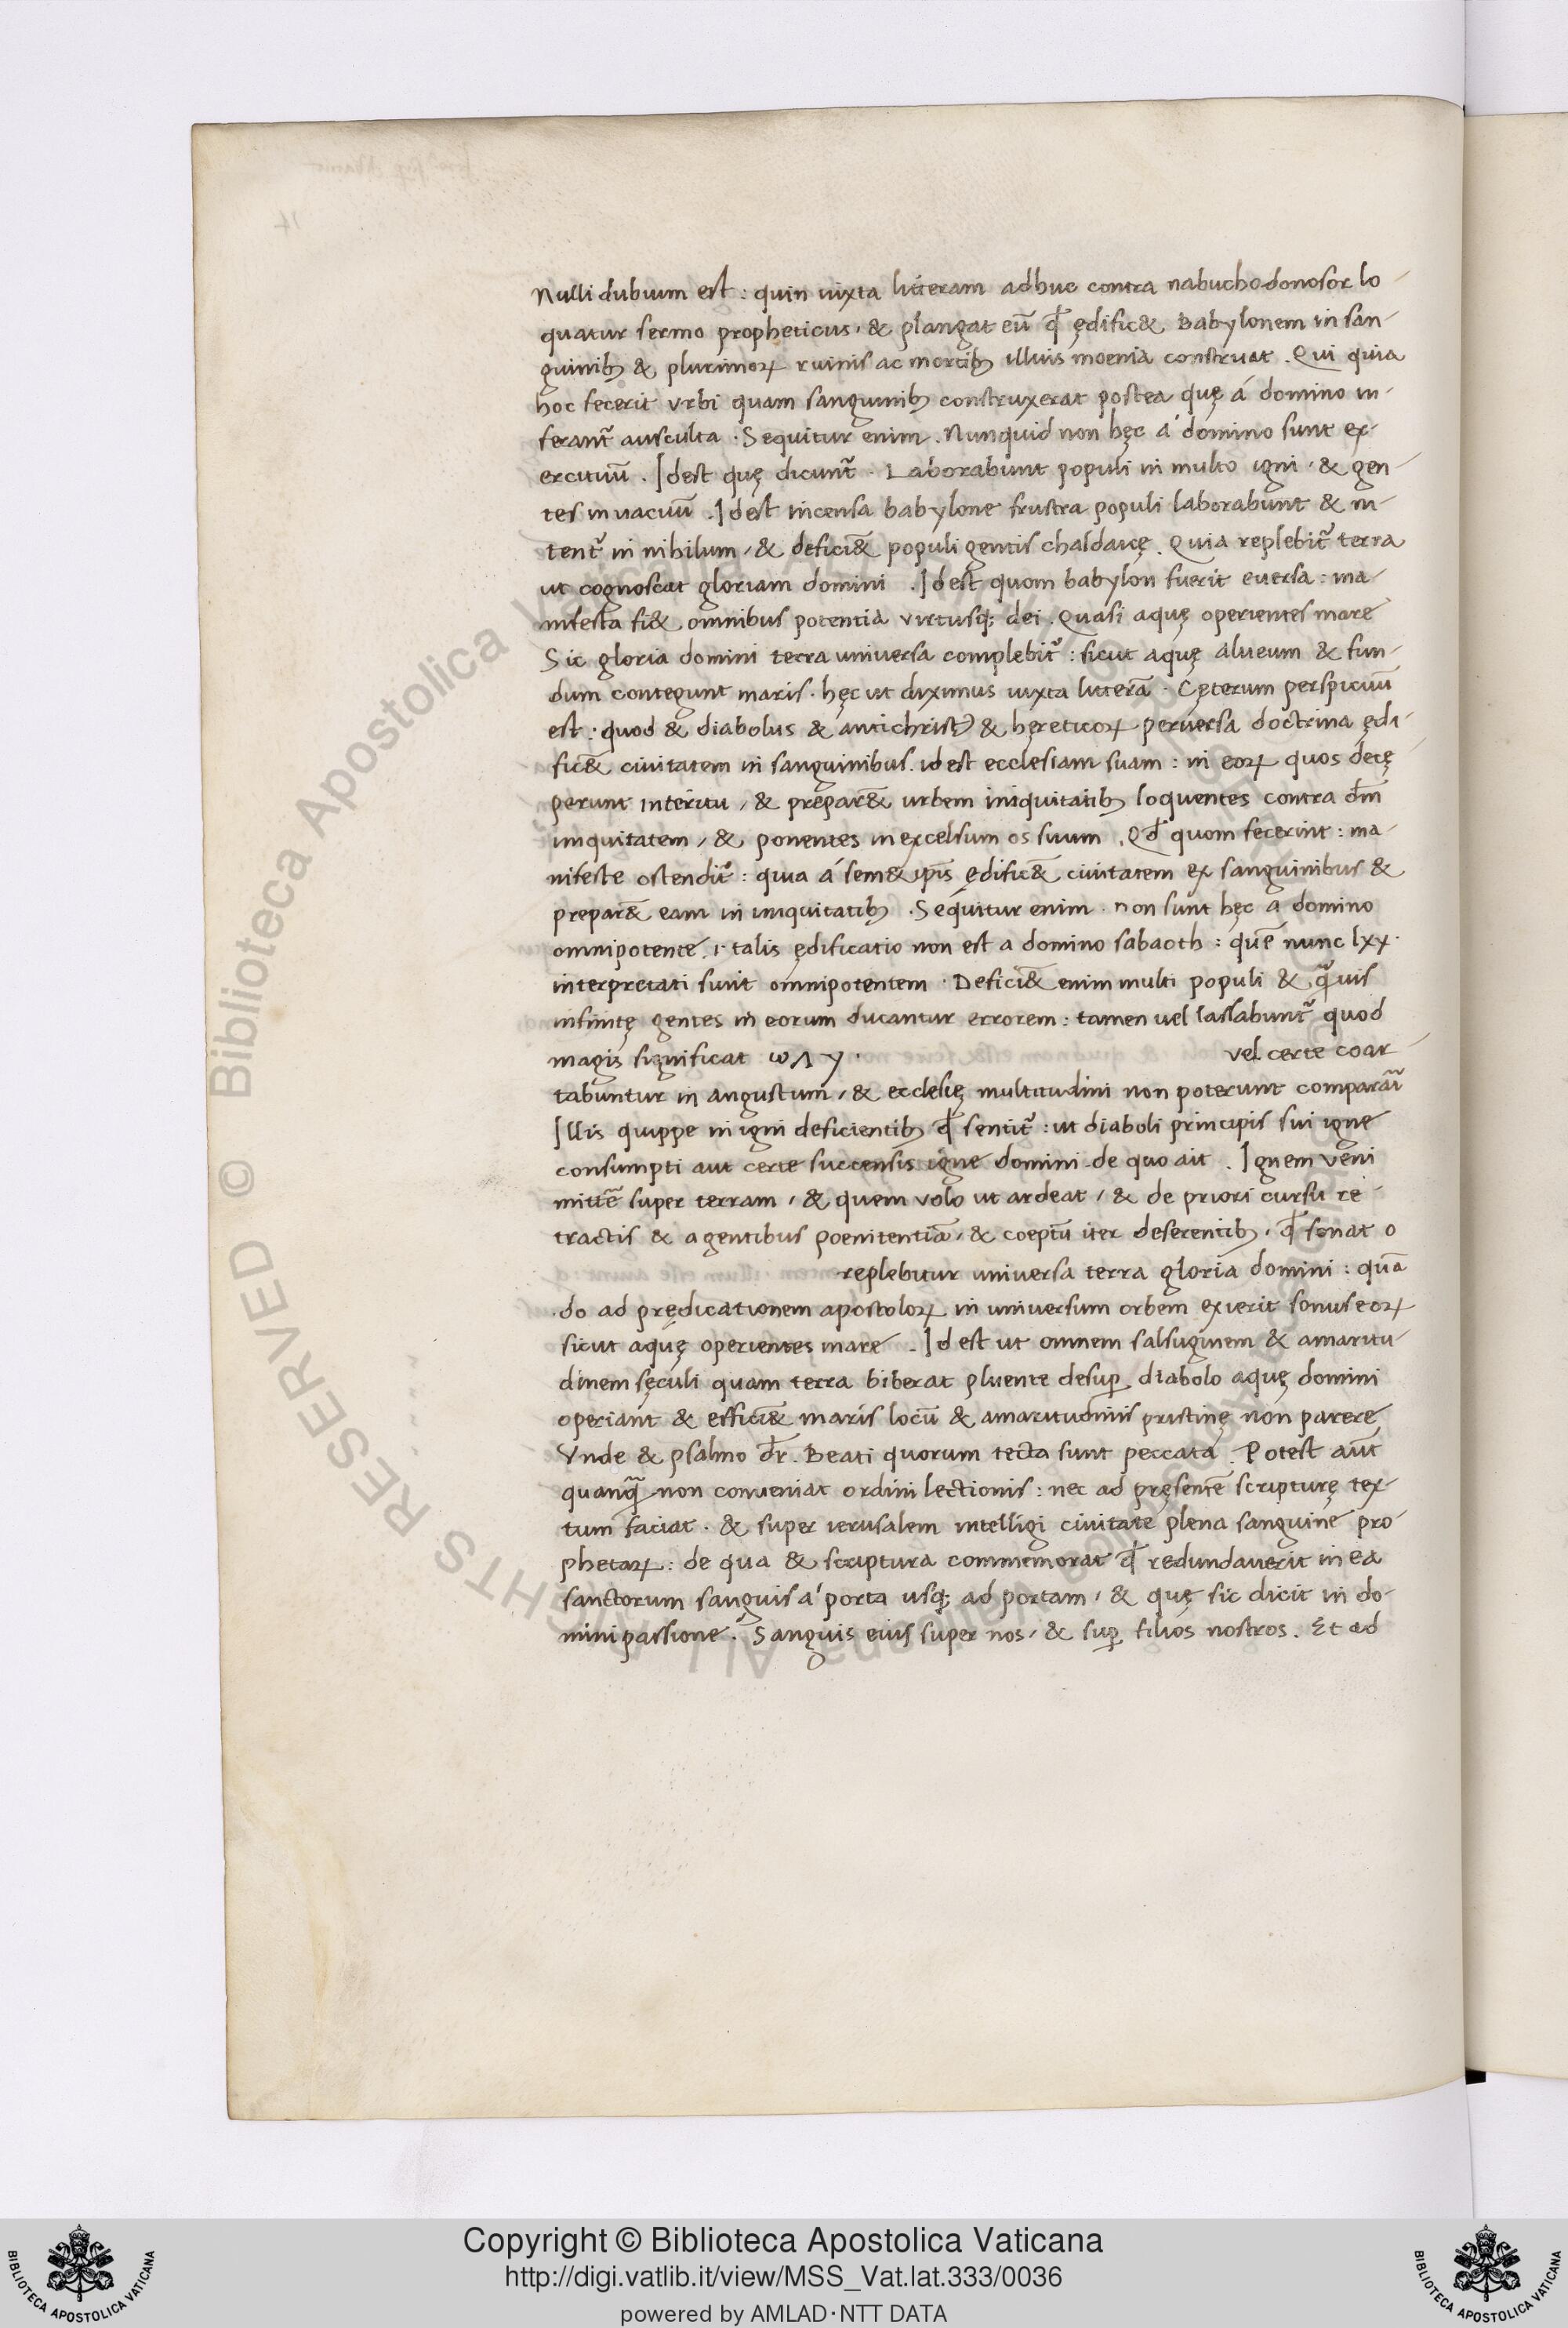 Nulli dubium est : quin iuxta litteram adhuc contra nabuchodonosor lo-
quatur sermo propheticus, & plangat eū qđ ędific& Babylonem in san-
guinib; & plurimoꝝ ruinis ac mortib; illius moenia construat . Qui quia
hoc fecerit vrbi quam sanguinib; construxerat postea quę á domino in-
ferant᷑ ausculta . Sequitur enim . Nunquid non hęc á domino sunt ex-
ercituū . Idest quę dicunt᷑ . Laborabunt populi in multo igni, & gen-
tes in vacuū . Idest incensa babylone frustra populi laborabunt & ni-
tent᷑ in nihilum, & defici&̄ populi gentis chaldaicę . Quia replebit᷑ terra
ut cognoscat gloriam domini . Idest quom babylon fuerit euersa : ma-
nifesta fi& omnibus potentia virtusq; dei . Quasi aquę operientes mare
Sic gloria domini terra uniuersa complebit᷑ : sicut aquę alueum & fun-
dum contegunt maris . hęc ut diximus iuxta litterā . Cęterum perspicuū
est : quod & diabolus & antichristꝰ & hęreticoꝝ peruersa doctrina ędi-
fic&̄ ciuitatem in sanguinibus . idest ecclesiam suam : in eoꝝ quos decę
perunt interitu, & prepar&̄ urbem iniquitatib; loquentes contra dm̄
iniquitatem, & ponentes in excelsum os suum . Qđ quom fecerint : ma-
nifeste ostendit᷑ : quia á sem& ip̄is ędific&̄ ciuitatem ex sanguinibus &
prepar&̄ eam in iniquitatib; . Sequitur enim . non sunt hęc a domino
omnipotente . i. talis ędificatio non est a domino sabaoth : quē nunc lxx.
interpretati sunt omnipotentem . Defici&̄ enim multi populi & q̄uis
infinitę gentes in eorum ducantur errorem : tamen uel lassabunt᷑ quod
magis significat ω Λ γ . vel certe coar-
tabuntur in angustum, & ecclesię multitudini non poterunt comparari
Illis quippe in igni deficientib; qđ sentit᷑ : ut diaboli principis sui igne
consumpti aut certe succensis igne domini de quo ait . Ignem veni
mittē super terram, & quem volo ut ardeat, & de priori cursu re-
tractis & agentibus poenitentiā, & coeptū iter deserentib; , qđ sonat o
replebitur uniuersa terra gloria domini : quā
do ad prędicationem apostoloꝝ in uniuersum orbem exierit sonus eoꝝ
sicut aquę operientes mare . Idest ut omnem salsuginem & amaritu-
dinem sęculi quam terra biberat pluente desuꝑ diabolo aquę domini
operiant & effici&̄ maris locū & amaritudinis pristinę non parere
Vnde & psalmo dr̄ . Beati quorum tecta sunt peccata . Potest aūt
quanq̄ non conueniat ordini lectionis : nec ad pręsentē scripturę tex-
tum faciat . & super ierusalem intelligi ciuitate plena sanguine pro-
phetaꝝ : de qua & scriptura commemorat qđ redundauerit in ea
sanctorum sanguis á porta usq; ad portam, & quę sic dicit in do-
mini passione . Sanguis eius super nos, & suꝑ filios nostros . Et ad
Copyright © Biblioteca Apostolica Vaticana
http://digi.vatlib.it/view/MSS_Vat.lat.333/0036
powered by AMLAD·NTT DATA
BIBLIOTECA APOSTOLICA VATICANA
BIBLIOTECA APOSTOLICA VATICANA